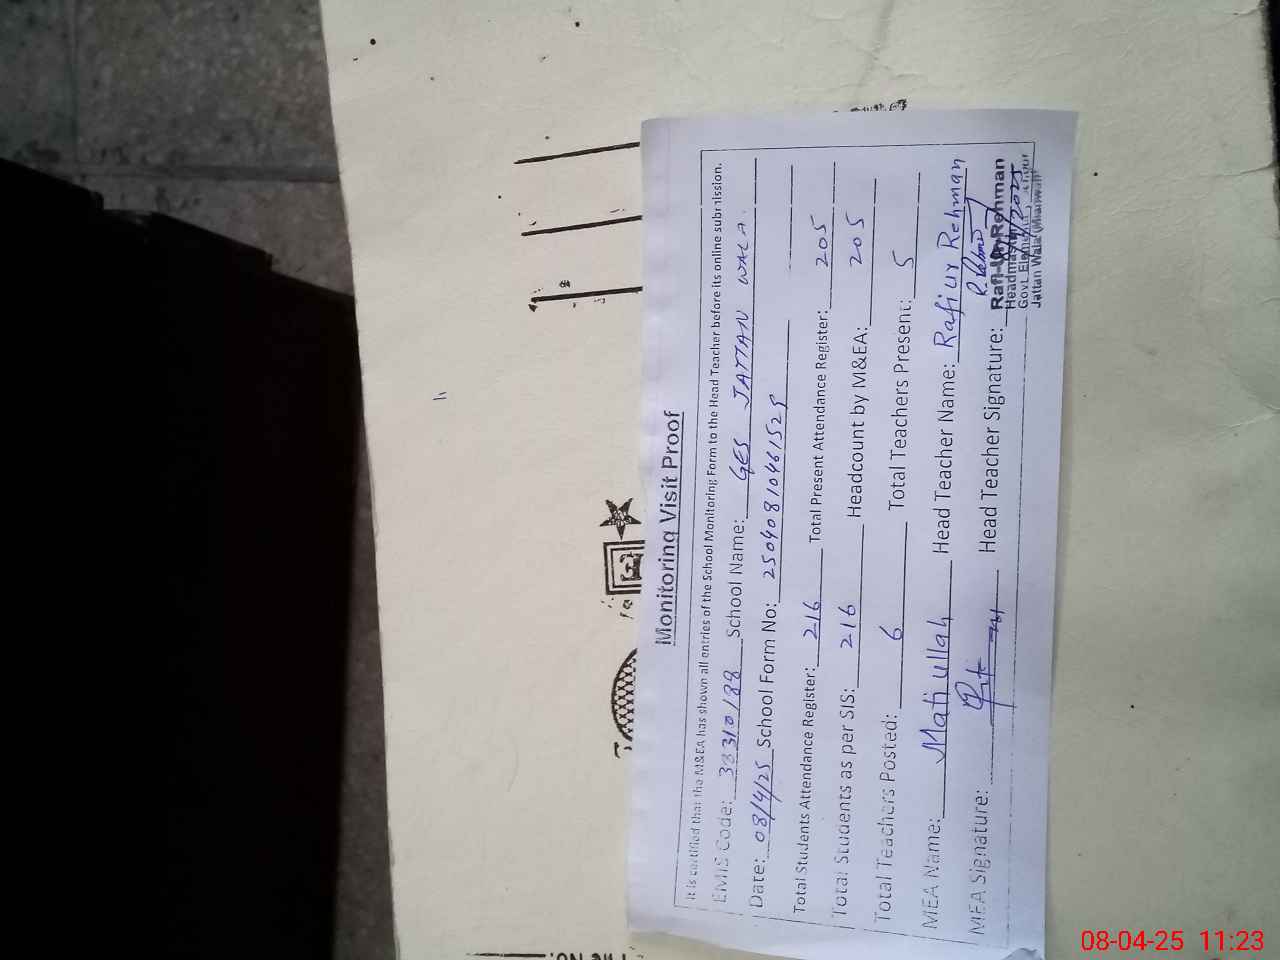 Monitoring Visit Proof
It is certified that the M&EA has shown all entries of the School Monitoring Form to the Head Teacher before its online submission.
EMIS Code: 38310188 School Name: GES JATTAN WALA.
Date: 08/4/25 School Form No: 25040810461529
Total Students Attendance Register: 216 Total Present Attendance Register: 205
Total Students as per SIS: 216 Headcount by M&EA: 205
Total Teachers Posted: 6 Total Teachers Present: 5
MEA Name: Mati ullah Head Teacher Name: Rafi ur Rehman
MEA Signature: Head Teacher Signature:
Rafi-Ur-Rehman
Headmaster
Govt. Elementary School
Jattan Wala (Mianwali)
File No.
08-04-25 11:23